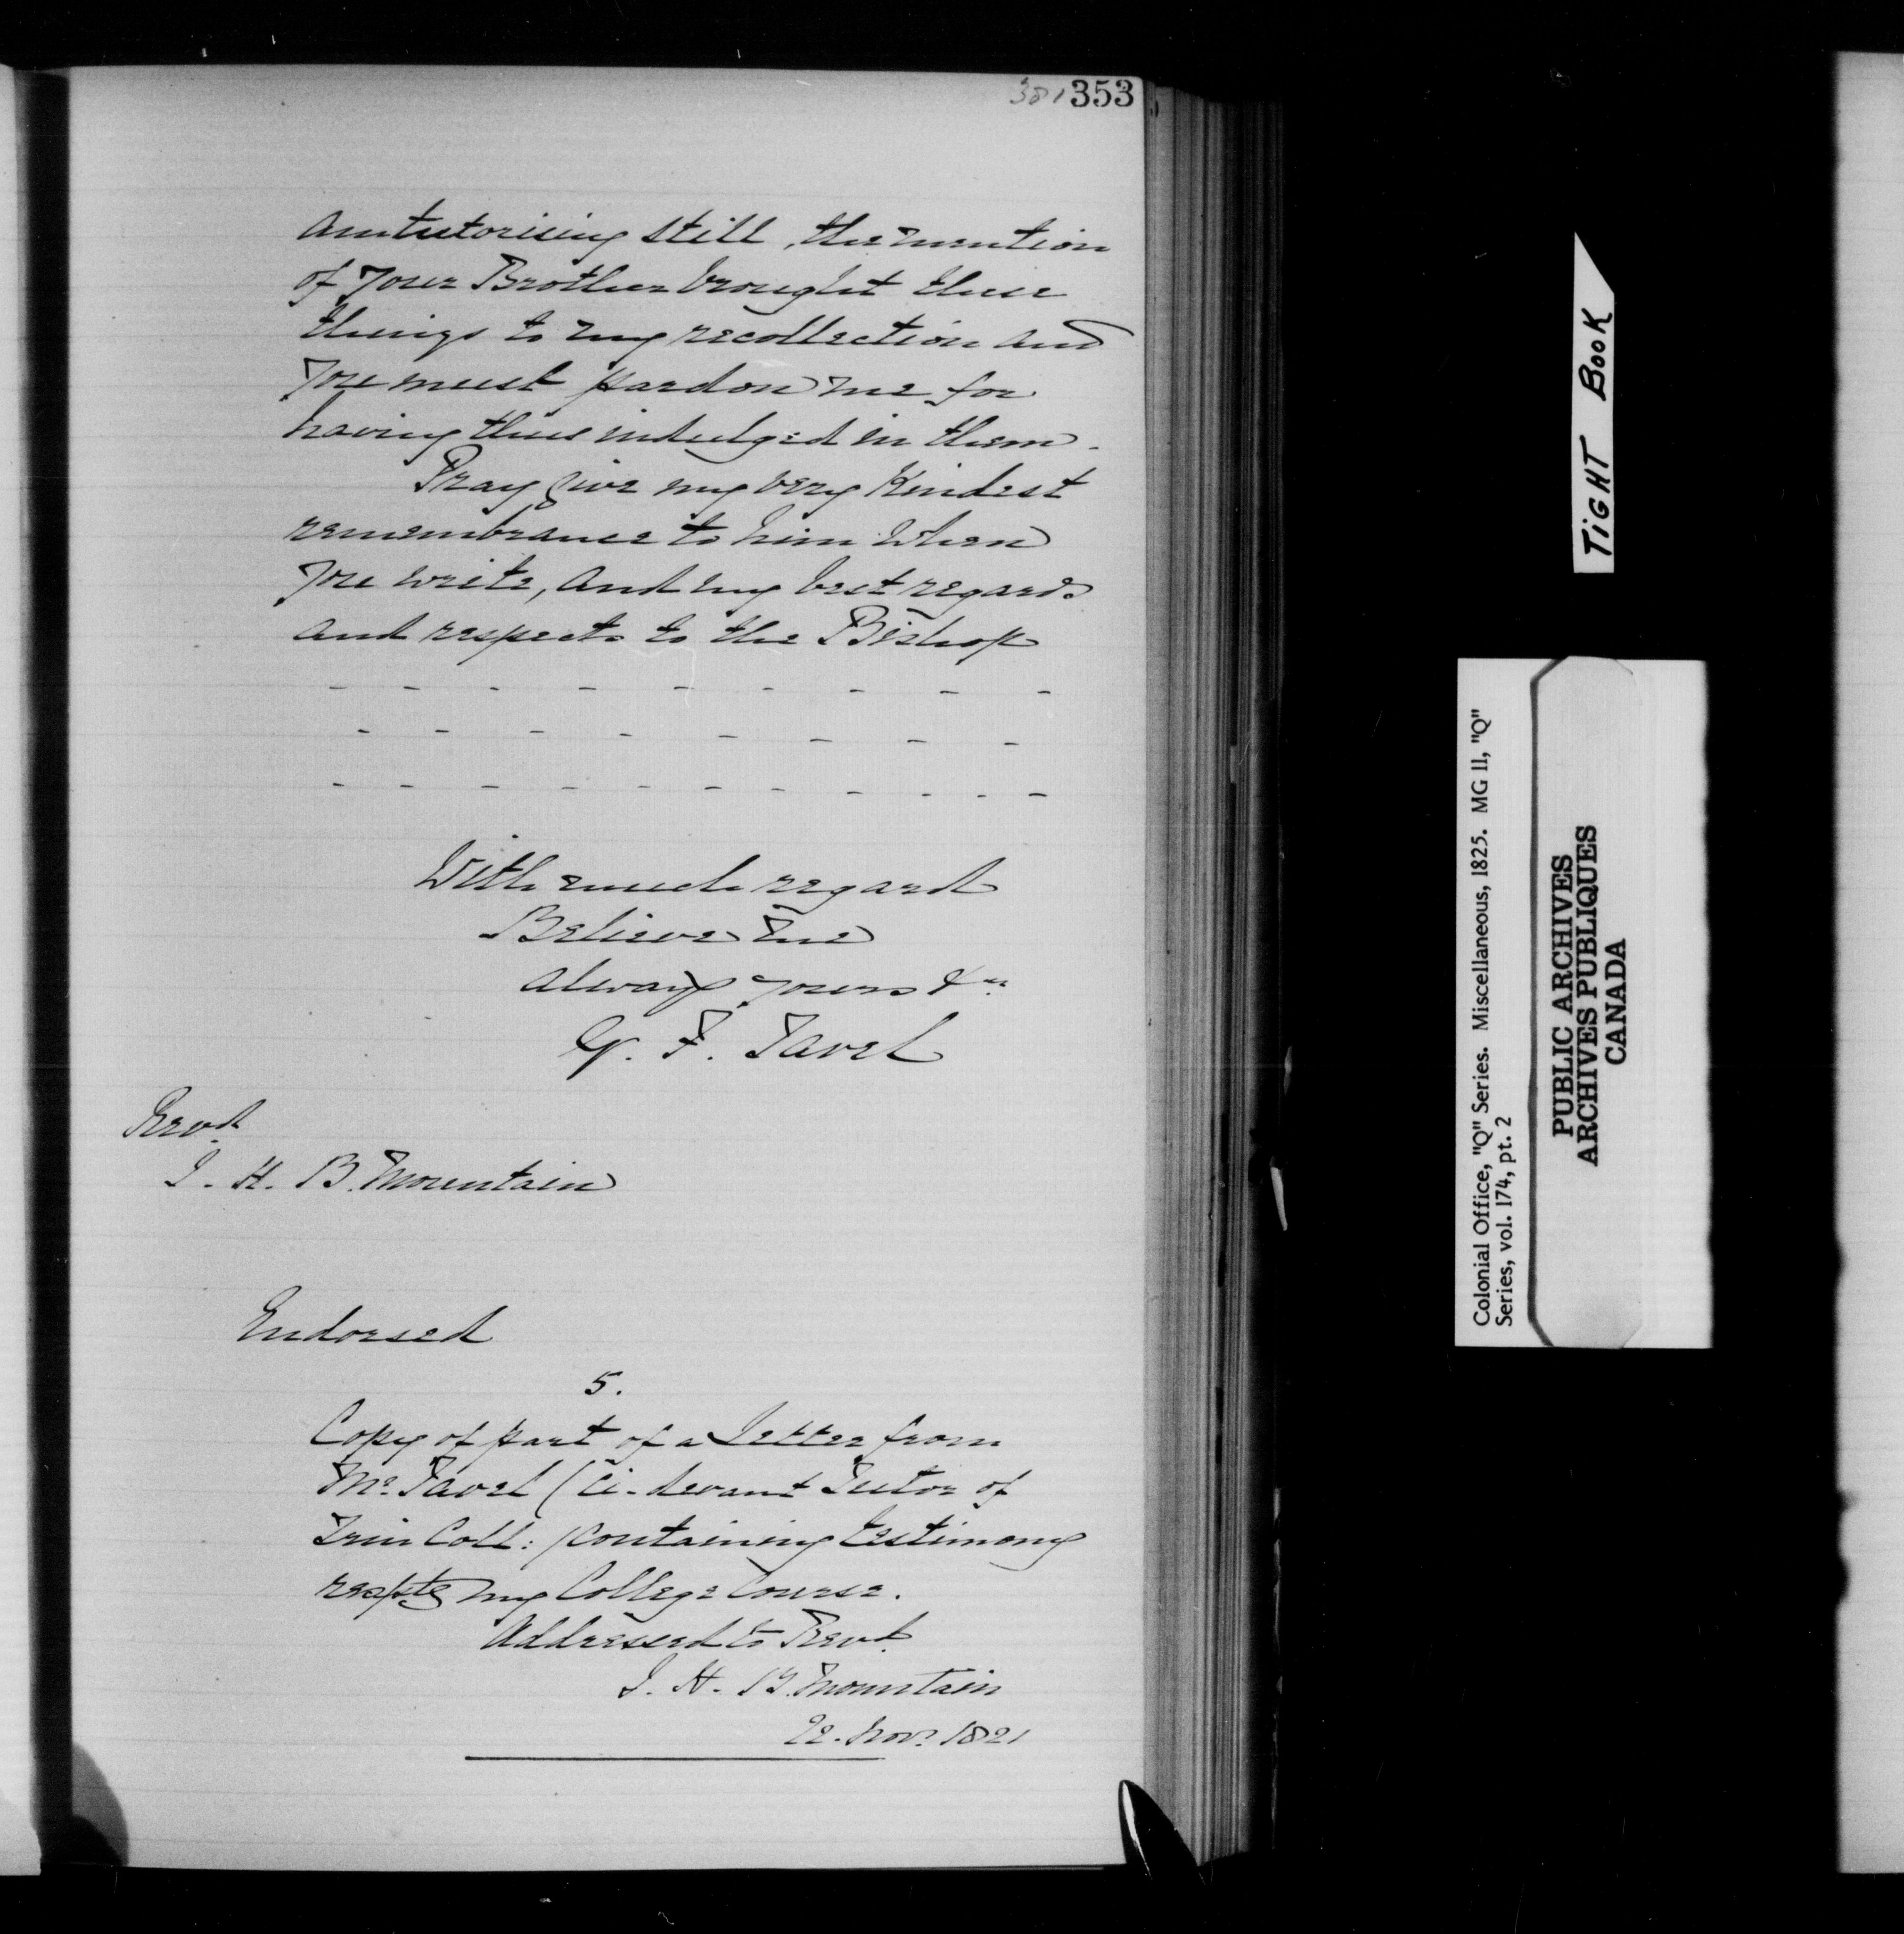 381 353
am tutorising still, the mention
of your Brother brought these
things to my recollection and
you must pardon me for
having thus indulged in them.
Pray give my very kindest
remembrance to him when
you write, and my best regards
and respects to the Bishop
- - - - - - - - -
- - - - - - - -
- - - - - - - - - - -
With much regard
Believe me
always yours &c
G. F. Tavel
Revd.
J. H. B. Mountain
Endorsed
5.
Copy of part of a Letter from
Mr. Tavel (ci-devant Tutor of
Trin Coll:) containing testimony
respectg my College Course.
Addressed to Revd.
J. H. B. Mountain
22. Novr. 1821
TIGHT BOOK
Colonial Office, "Q" Series. Miscellaneous, 1825. MG 11, "Q"
Series, vol. 174, pt. 2
PUBLIC ARCHIVES
ARCHIVES PUBLIQUES
CANADA